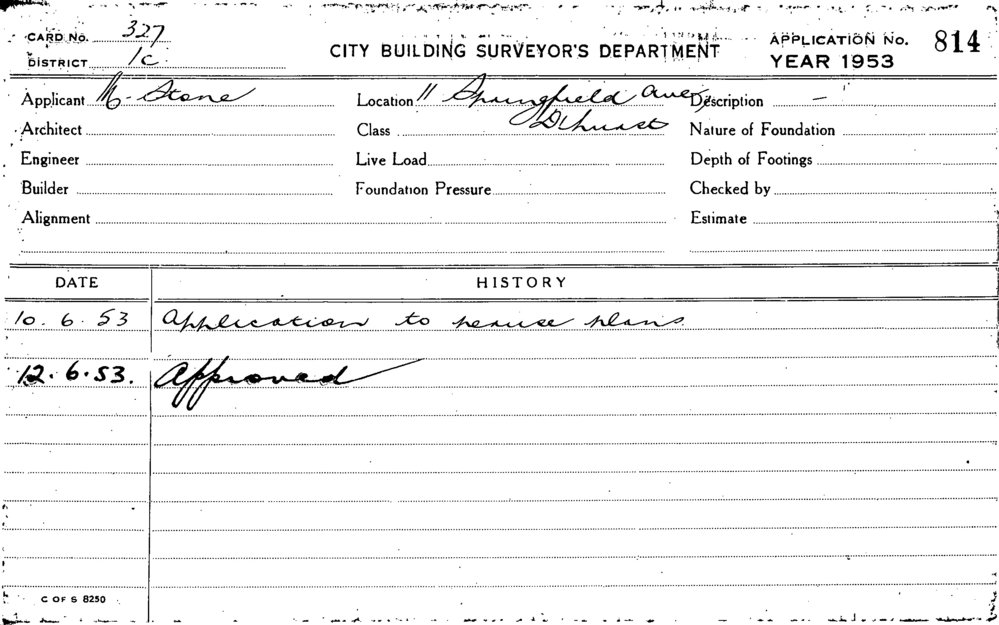 CARD No. 327
DISTRICT 1c.
CITY BUILDING SURVEYOR'S DEPARTMENT
APPLICATION No. 814
YEAR 1953
Applicant M. Stone
Location 11 Springfield Ave,
D'hurst
Description —
Architect
Class
Nature of Foundation
Engineer
Live Load
Depth of Footings
Builder
Foundation Pressure
Checked by
Alignment
Estimate
DATE HISTORY
10. 6. 53 Application to peruse plans.
12. 6. 53. Approved
C OF S 8250